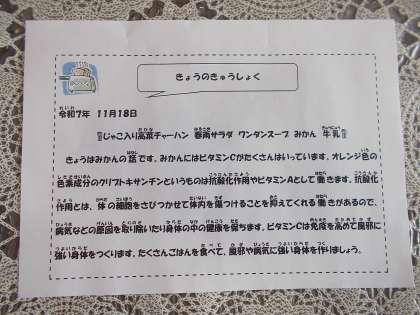 きょうのきゅうしょく
令和7年 11月18日
じゃこ入り高菜チャーハン 春雨サラダ ワンタンスープ みかん 牛乳
きょうはみかんの話です。みかんにはビタミンCがたくさんはいっています。オレンジ色の
色素成分のクリプトキサンチンというものは抗酸化作用やビタミンAとして働きます。抗酸化
作用とは、体の細胞をさびつかせて体内を傷つけることを抑えてくれる働きがあるので、
病気などの原因を取り除いたり身体の中の健康を保ちます。ビタミンCは免疫を高めて風邪に
強い身体をつくります。たくさんごはんを食べて、風邪や病気に強い身体を作りましょう。